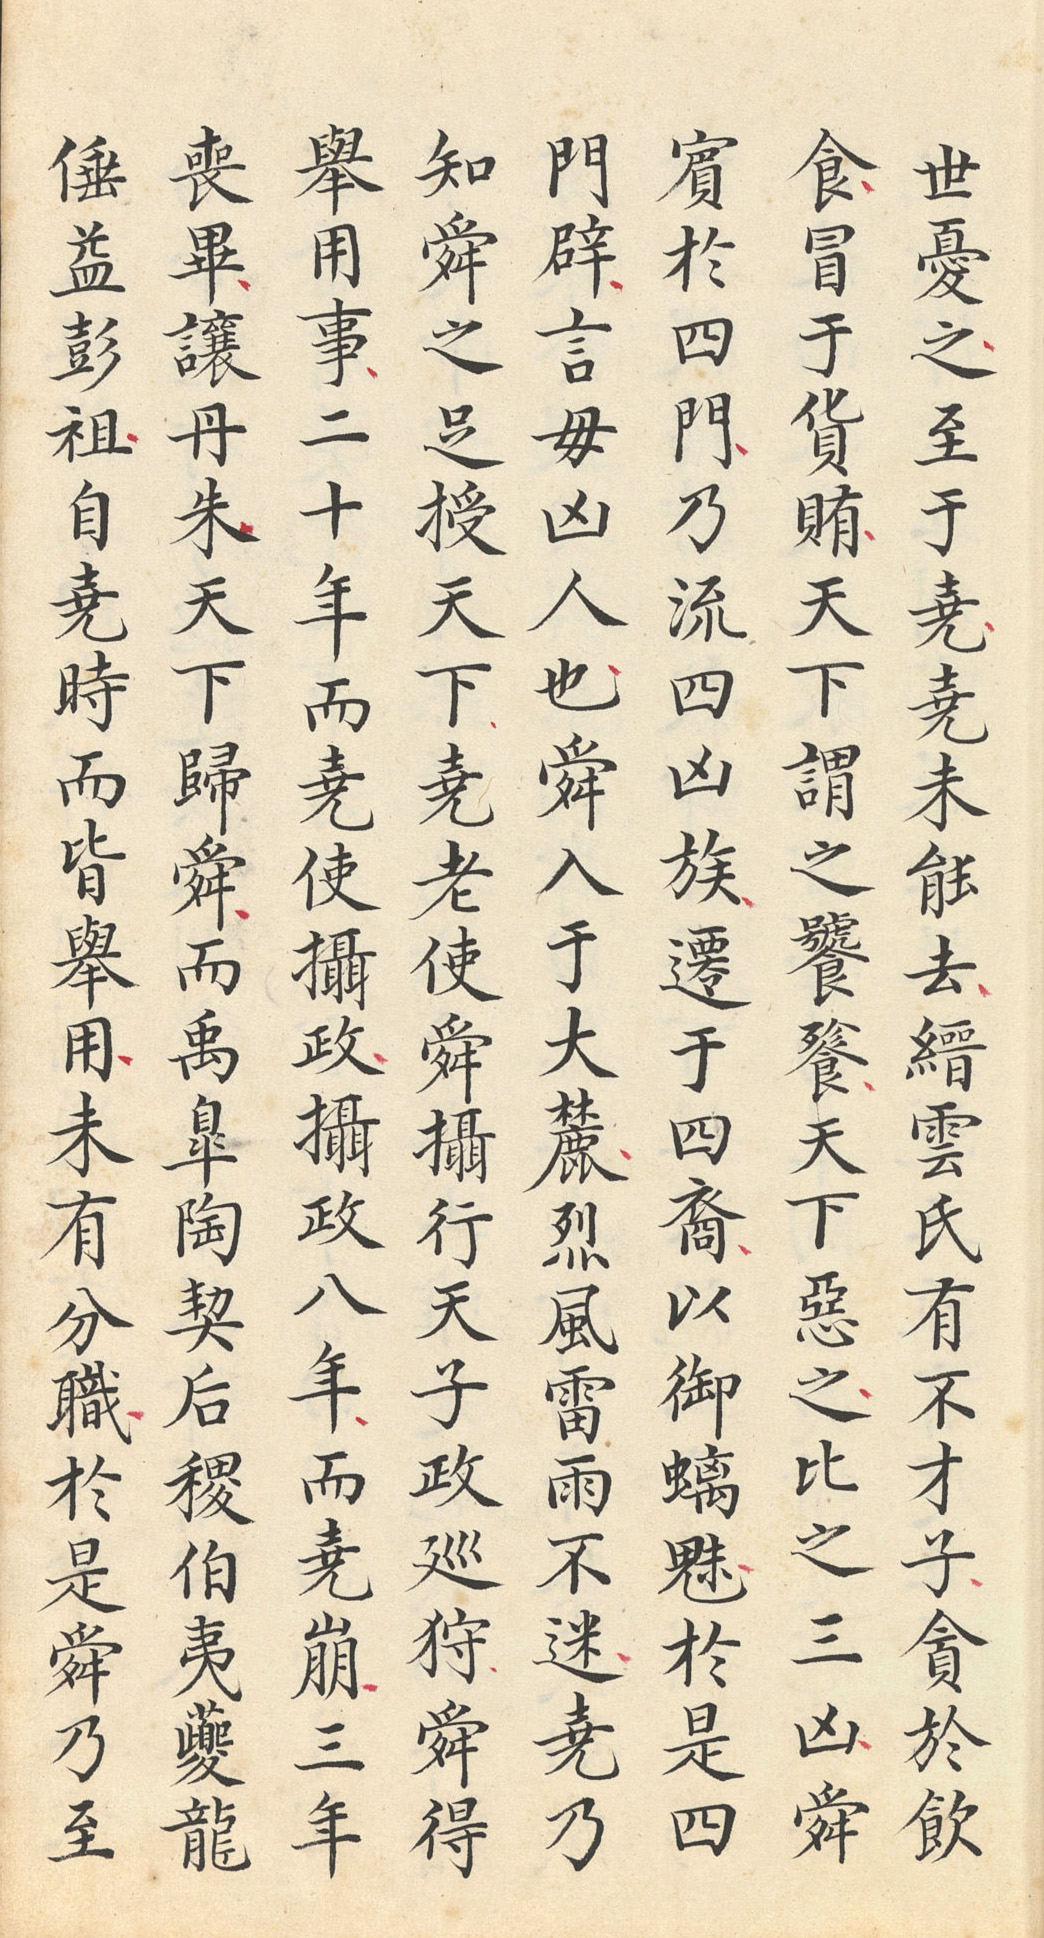 世憂之至于堯堯未能去縉雲氏有不才子貪於飲
食冒于貨賄天下謂之饕餮天下惡之比之三凶舜
賓於四門乃流四凶族遷于四裔以御螭魅於是四
門辟言毋凶人也舜入于大麓烈風雷雨不迷堯乃
知舜之足授天下堯老使舜攝行天子政巡狩舜得
舉用事二十年而堯使攝政攝政八年而堯崩三年
喪畢讓丹朱天下歸舜而禹皋陶契后稷伯夷夔龍
倕益彭祖自堯時而皆舉用未有分職於是舜乃至